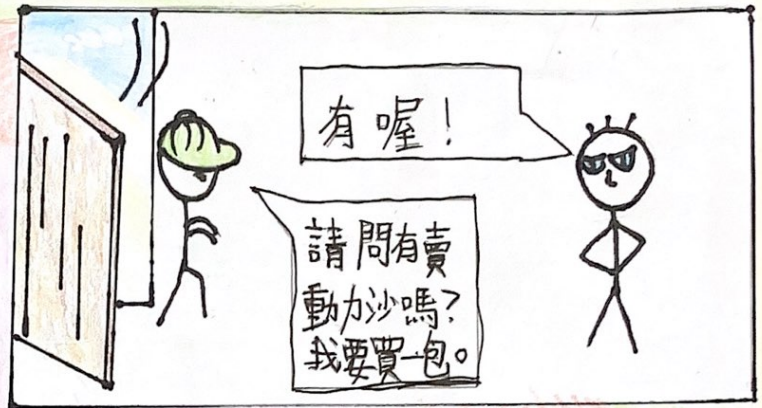 有喔！
請問有賣
動力沙嗎？
我要買一包。